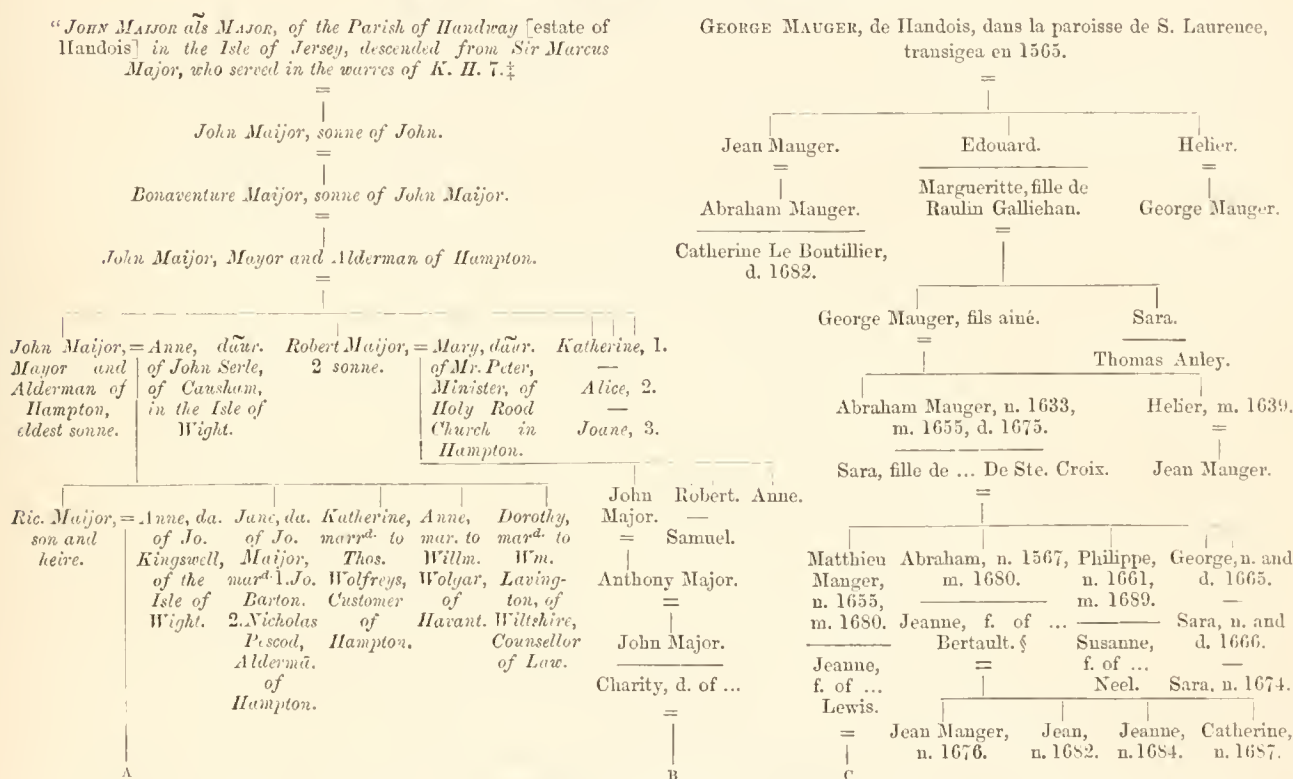 "JOHN MAIJOR als MAJOR, of the Parish of Handway [estate of
Handois] in the Isle of Jersey, descended from Sir Marcus
Major, who served in the warres of K. H. 7.‡
John Maijor, sonne of John.
Bonaventure Maijor, sonne of John Maijor.
John Maijor, Mayor and Alderman of Hampton.
John Maijor,
Mayor and
Alderman of
Hampton,
eldest sonne.
= Anne, daur.
of John Serle,
of Causham,
in the Isle of
Wight.
Robert Maijor,
2 sonne.
= Mary, daur.
of Mr. Peter,
Minister, of
Holy Rood
Church in
Hampton.
Katherine, 1.
—
Alice, 2.
—
Joane, 3.
Ric. Maijor,
son and
heire.
= Anne, da.
of Jo.
Kingswell,
of the
Isle of
Wight.
Jane, da.
of Jo.
Maijor,
mard. 1. Jo.
Barton.
2. Nicholas
Pescod,
Aldermā.
of
Hampton.
Katherine,
marrd. to
Thos.
Wolfreys,
Customer
of
Hampton.
Anne,
mar. to
Willm.
Wolgar,
of
Havant.
Dorothy,
mard. to
Wm.
Laving-
ton, of
Wiltshire,
Counsellor
of Law.
John
Major.
=
Anthony Major.
=
John Major.
Charity, d. of ...
=
Robert.
—
Samuel.
Anne.
A
B
GEORGE MAUGER, de Handois, dans la paroisse de S. Laurence,
transigea en 1565.
=
Jean Mauger.
=
Abraham Mauger.
Catherine Le Boutillier,
d. 1682.
Edouard.
Margueritte, fille de
Raulin Galliehan.
Helier.
=
George Mauger.
George Mauger, fils ainé.
=
Sara.
Thomas Anley.
Abraham Mauger, n. 1633,
m. 1655, d. 1675.
Sara, fille de ... De Ste. Croix.
=
Helier, m. 1639.
=
Jean Mauger.
Matthieu
Mauger,
n. 1655,
m. 1680.
Jeanne,
f. of ...
Lewis.
=
C
Abraham, n. 1567,
m. 1680.
Jeanne, f. of ...
Bertault. §
=
Philippe,
n. 1661,
m. 1689.
Susanne,
f. of ...
Neel.
George, n. and
d. 1665.
—
Sara, n. and
d. 1666.
—
Sara, n. 1674.
Jean Mauger,
n. 1676.
Jean,
n. 1682.
Jeanne,
n. 1684.
Catherine,
n. 1687.